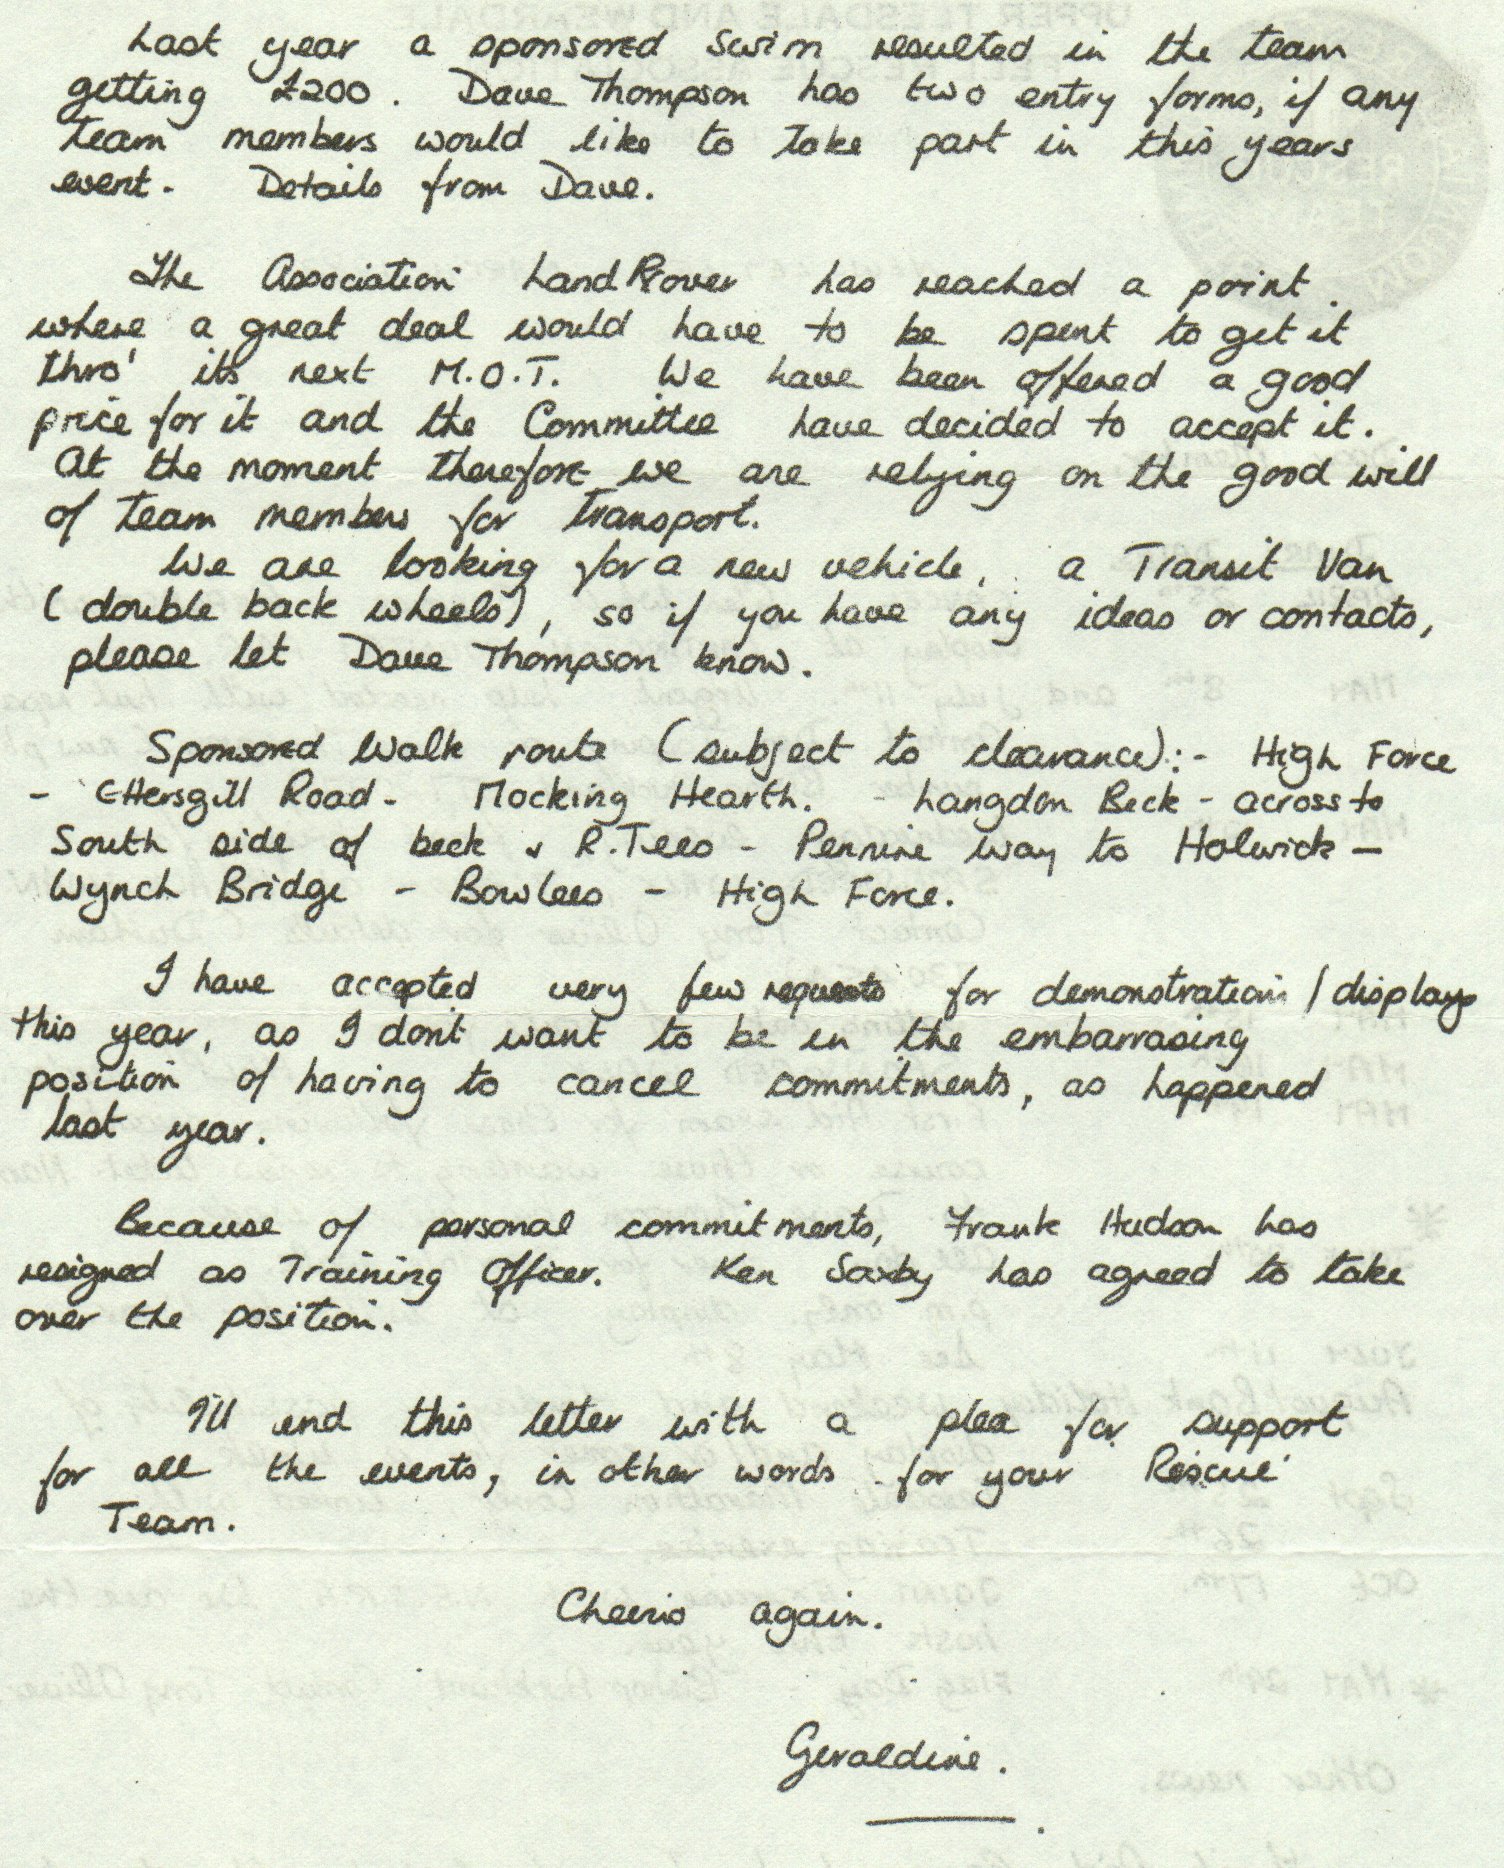 Last year a sponsored swim resulted in the team
getting £200. Dave Thompson has two entry forms, if any
team members would like to take part in this years
event. Details from Dave.
The Association Land Rover has reached a point
where a great deal would have to be spent to get it
thro' its next M.O.T. We have been offered a good
price for it and the Committee have decided to accept it.
At the moment therefore we are relying on the good will
of team members for transport.
We are looking for a new vehicle, a Transit Van
(double back wheels), so if you have any ideas or contacts,
please let Dave Thompson know.
Sponsored Walk route (subject to clearance):- High Force
- Ettersgill Road - Mocking Hearth. - Langdon Beck - across to
South side of beck & R. Tees - Pennine Way to Holwick -
Wynch Bridge - Bowlees - High Force.
I have accepted very few requests for demonstration / displays
this year, as I don't want to be in the embarrasing
position of having to cancel commitments, as happened
last year.
Because of personal commitments, Frank Hudson has
resigned as Training Officer. Ken Saxby has agreed to take
over the position.
I'll end this letter with a plea for support
for all the events, in other words for your Rescue
Team.
Cheerio again.
Geraldine.